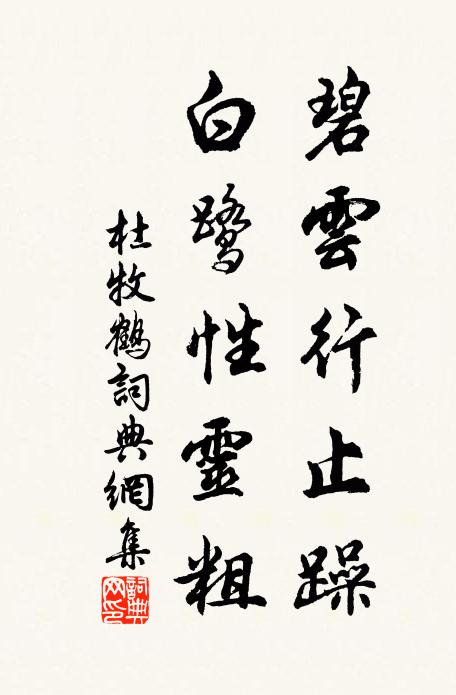 碧雲行止躁
白鷺性靈粗
杜牧鶴詞典網集
詞典網印